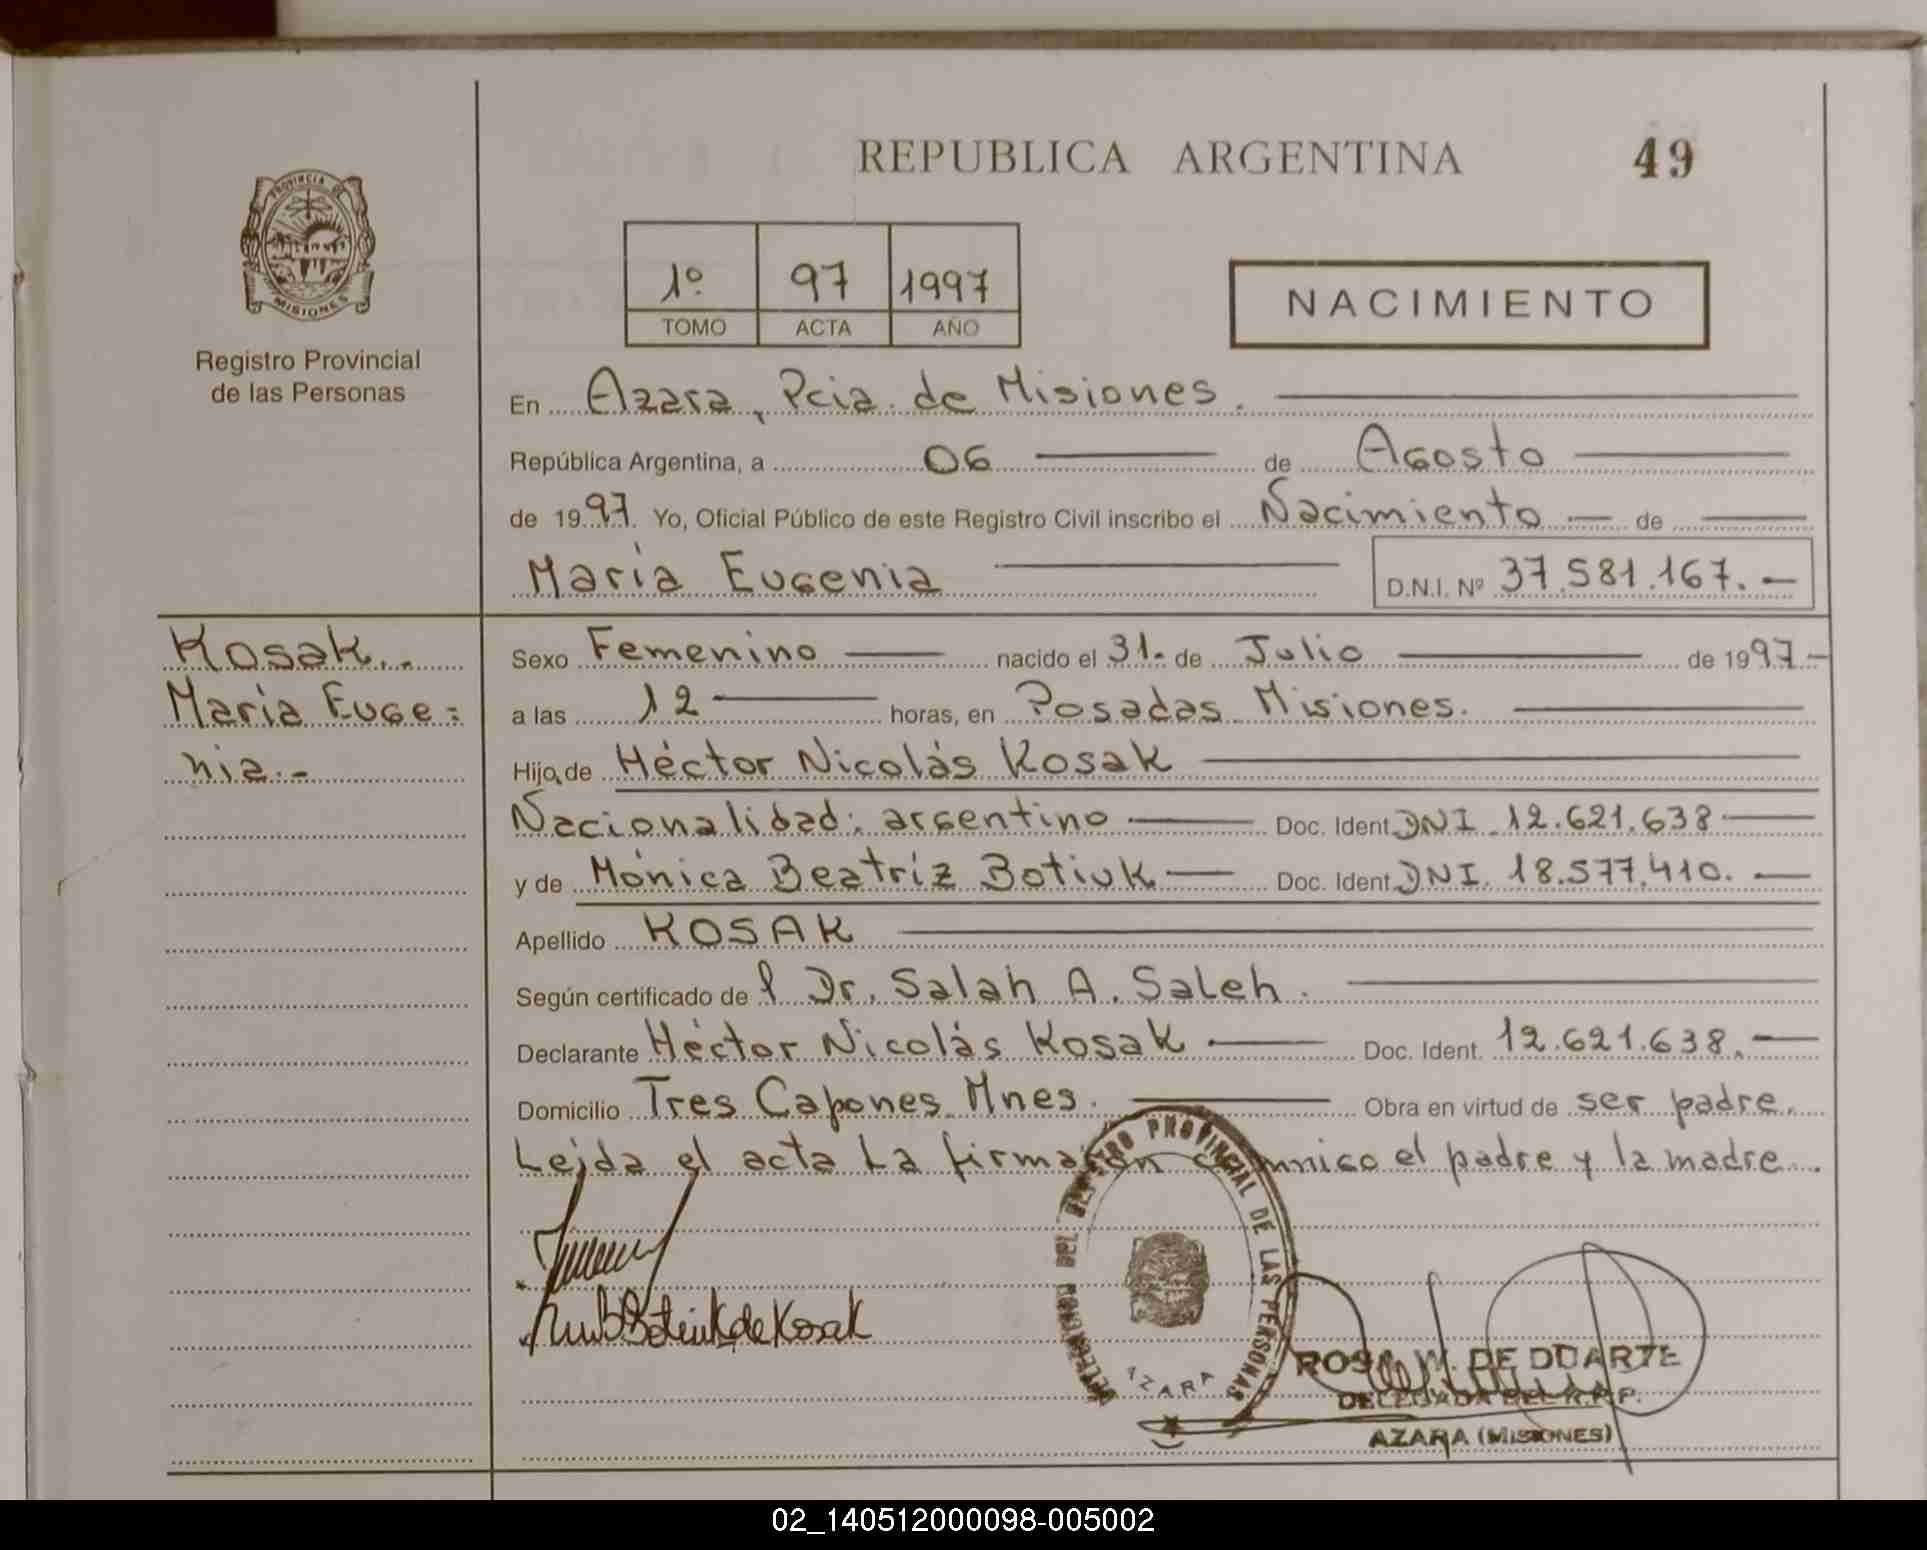 REPUBLICA ARGENTINA 49
PROVINCIA DE
MISIONES
Registro Provincial
de las Personas
1º 97 1997
TOMO ACTA AÑO
NACIMIENTO
En Azara, Pcia. de Misiones.
República Argentina, a 06 de Agosto
de 1997. Yo, Oficial Público de este Registro Civil inscribo el Nacimiento de
María Eugenia D.N.I. Nº 37.581.167.-
Kosak..
María Euge=
nia.-
Sexo Femenino nacido el 31. de Julio de 1997.-
a las 12 horas, en Posadas Misiones.
Hija de Héctor Nicolás Kosak
Nacionalidad: argentino Doc. Ident DNI 12.621.638
y de Mónica Beatríz Botiuk Doc. Ident DNI. 18.577.410.
Apellido KOSAK
Según certificado del Dr. Salah A. Saleh.
Declarante Héctor Nicolás Kosak Doc. Ident. 12.621.638.
Domicilio Tres Capones Mnes. Obra en virtud de ser padre.
Leida el acta La firman conmigo el padre y la madre.
Botiuk de Kosak
DELEGACION DEL REGISTRO PROVINCIAL DE LAS PERSONAS
AZARA
ROSA M. DE DUARTE
DELEGADA DEL R.P.P.
AZARA (MISIONES)
02_140512000098-005002